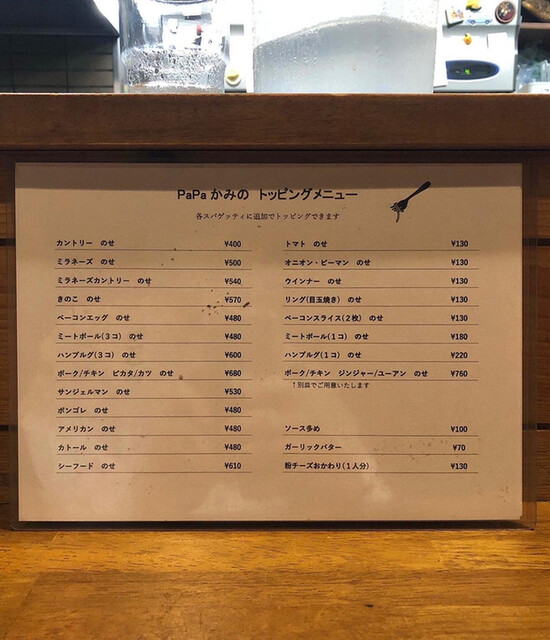 PaPa かみの トッピングメニュー
各スパゲッティに追加でトッピングできます
カントリー のせ ¥400
ミラネーズ のせ ¥500
ミラネーズカントリー のせ ¥540
きのこ のせ ¥570
ベーコンエッグ のせ ¥480
ミートボール(3コ) のせ ¥480
ハンブルグ(3コ) のせ ¥600
ポーク/チキン ピカタ/カツ のせ ¥680
サンジェルマン のせ ¥530
ボンゴレ のせ ¥480
アメリカン のせ ¥480
カトール のせ ¥480
シーフード のせ ¥610
トマト のせ ¥130
オニオン・ピーマン のせ ¥130
ウインナー のせ ¥130
リング(目玉焼き) のせ ¥130
ベーコンスライス(2枚) のせ ¥130
ミートボール(1コ) のせ ¥180
ハンブルグ(1コ) のせ ¥220
ポーク/チキン ジンジャー/ユーアン のせ ¥760
↑別皿でご用意いたします
ソース多め ¥100
ガーリックバター ¥70
粉チーズおかわり(1人分) ¥130